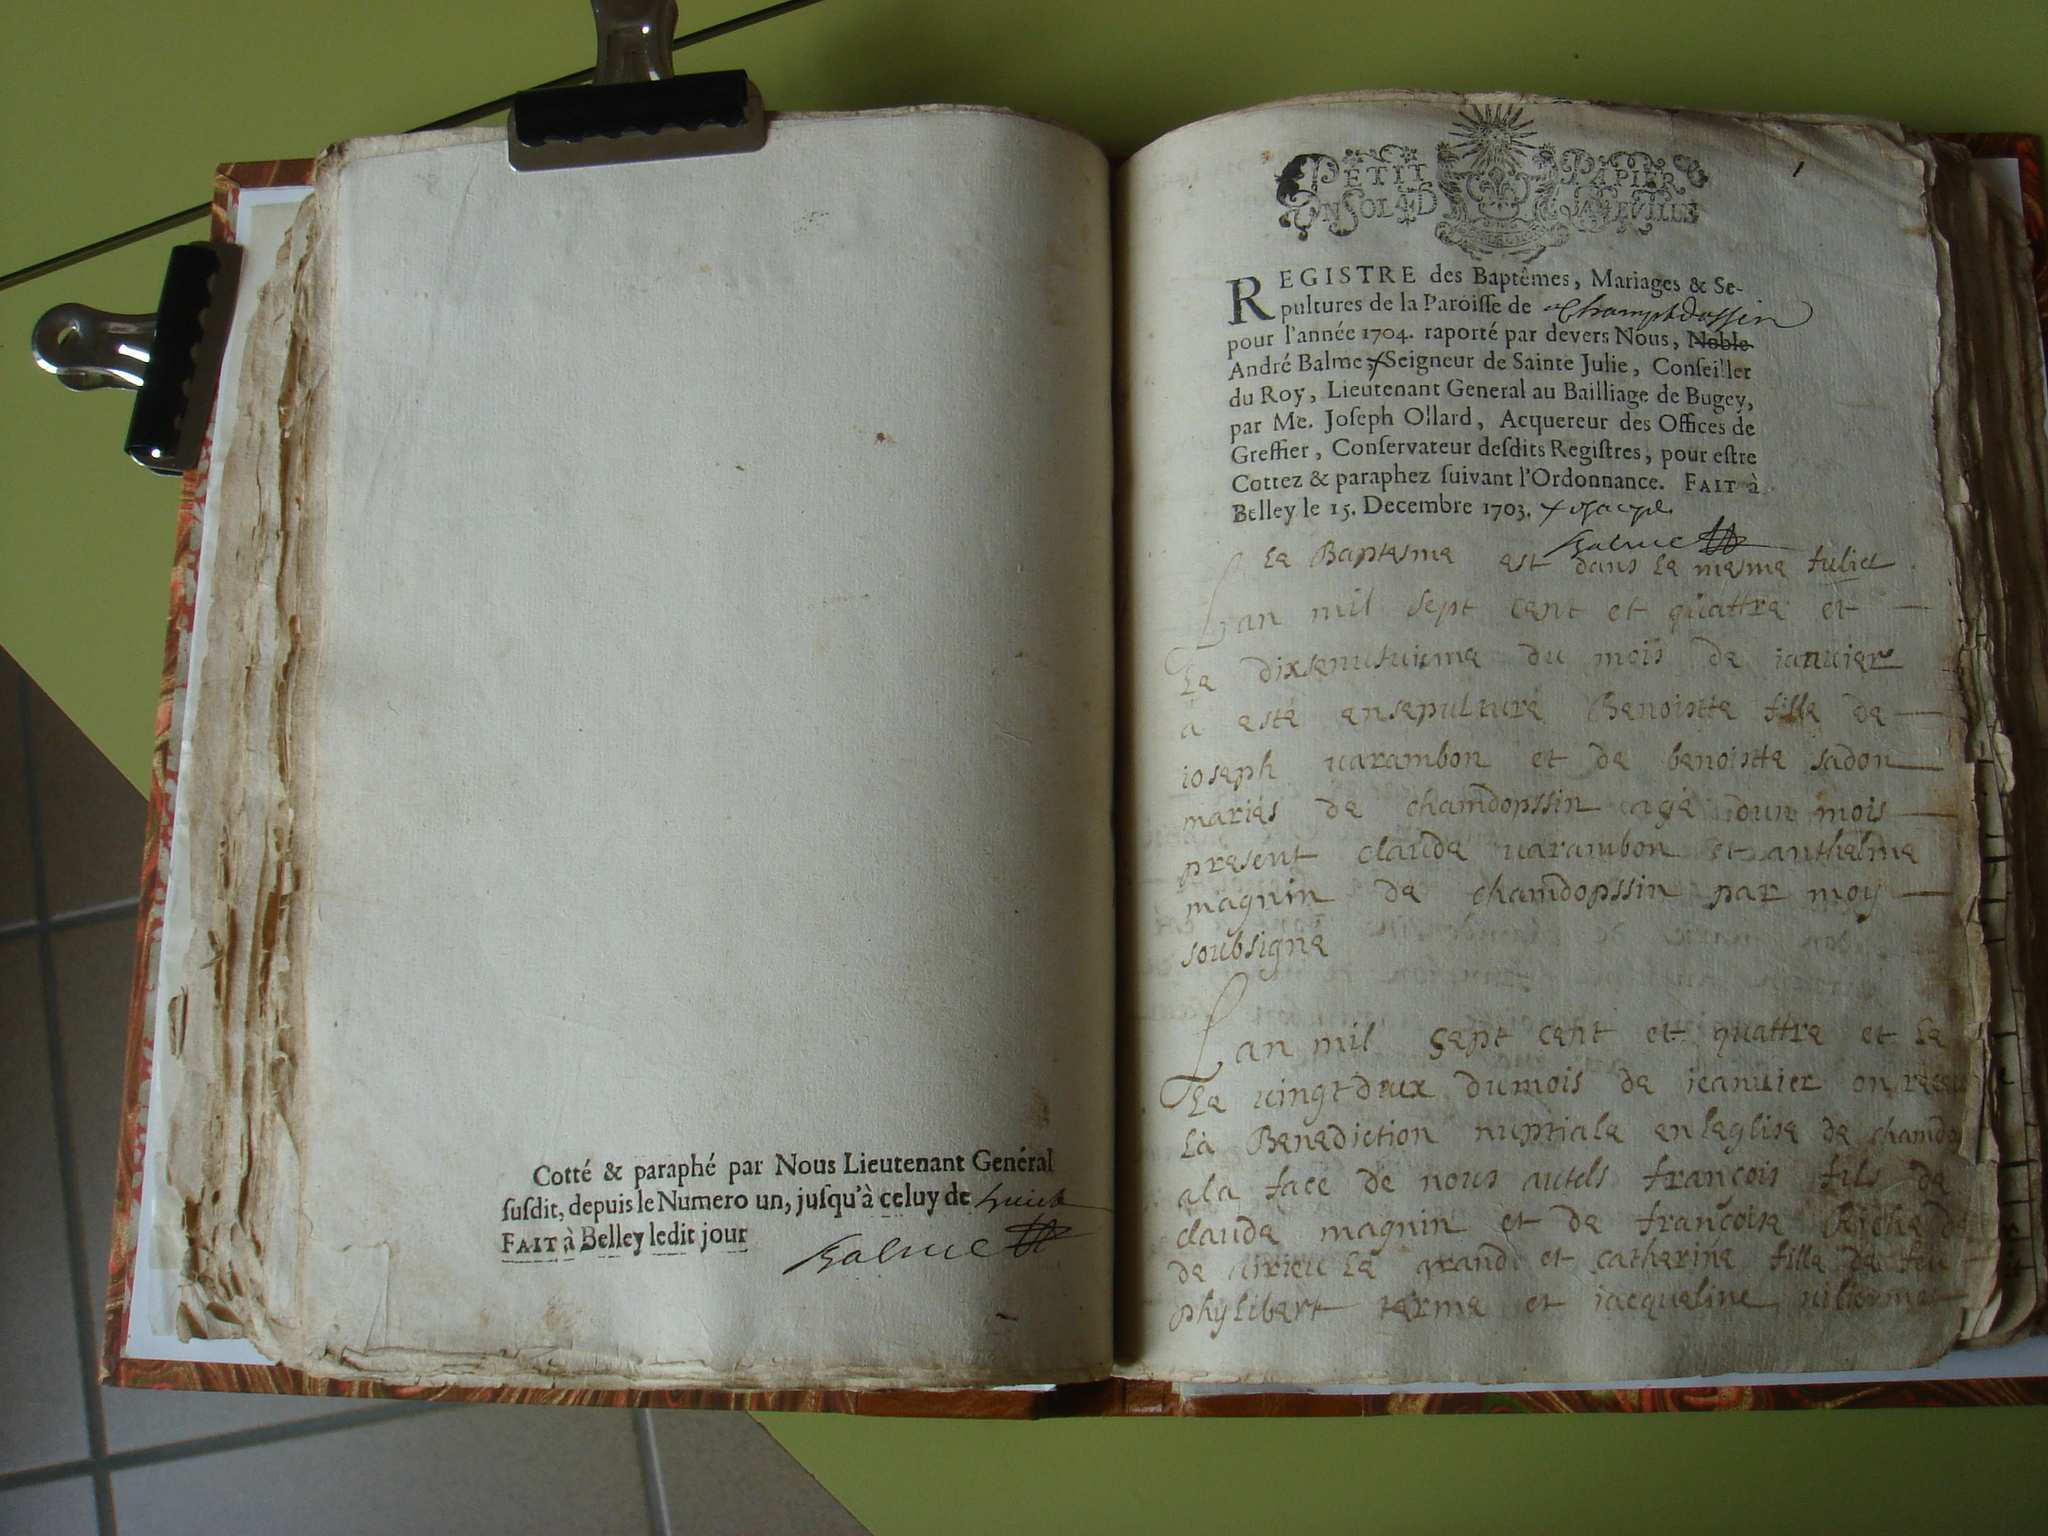 Cotté & paraphé par Nous Lieutenant General
ſuſdit, depuis le Numero un, juſqu'à celuy de huict
FAIT à Belley ledit jour
Balme
1
PETIT PAPIER
UN SOL 4 D LA FEUILLE
REGISTRE des Baptêmes, Mariages & Se-
pultures de la Paroiſſe de Champtdossin
pour l'année 1704. raporté par devers Nous, Noble
André Balme, + Seigneur de Sainte Julie, Conſeiller
du Roy, Lieutenant General au Bailliage de Bugey,
par Me. Joſeph Ollard, Acquereur des Offices de
Greffier, Conſervateur deſdits Regiſtres, pour eſtre
Cottez & paraphez ſuivant l'Ordonnance. FAIT à
Belley le 15. Decembre 1703. +
Balme
Le Baptesme est dans le mesme fuliet
Lan mil sept cent et quattre et
Le dixsenutuieme du mois de ianuier
a esté ensepulturé Benoistte fille de
ioseph uarambon et de benoistte sadon
mariés de chamdopssin agé dun mois
present claude uarambon et anthelme
magnin de chamdopssin par moy
soubsigne
Lan mil sept cent et quattre et le
Le uingtdeux du mois de ieanuier on receu
la Benediction nuptiale en leglise de chamdo
a la face de nous autels françois fils de
claude magnin et de françoise
de uirieu le grand et catherine fille de feu
phylibert terme et iacqueline